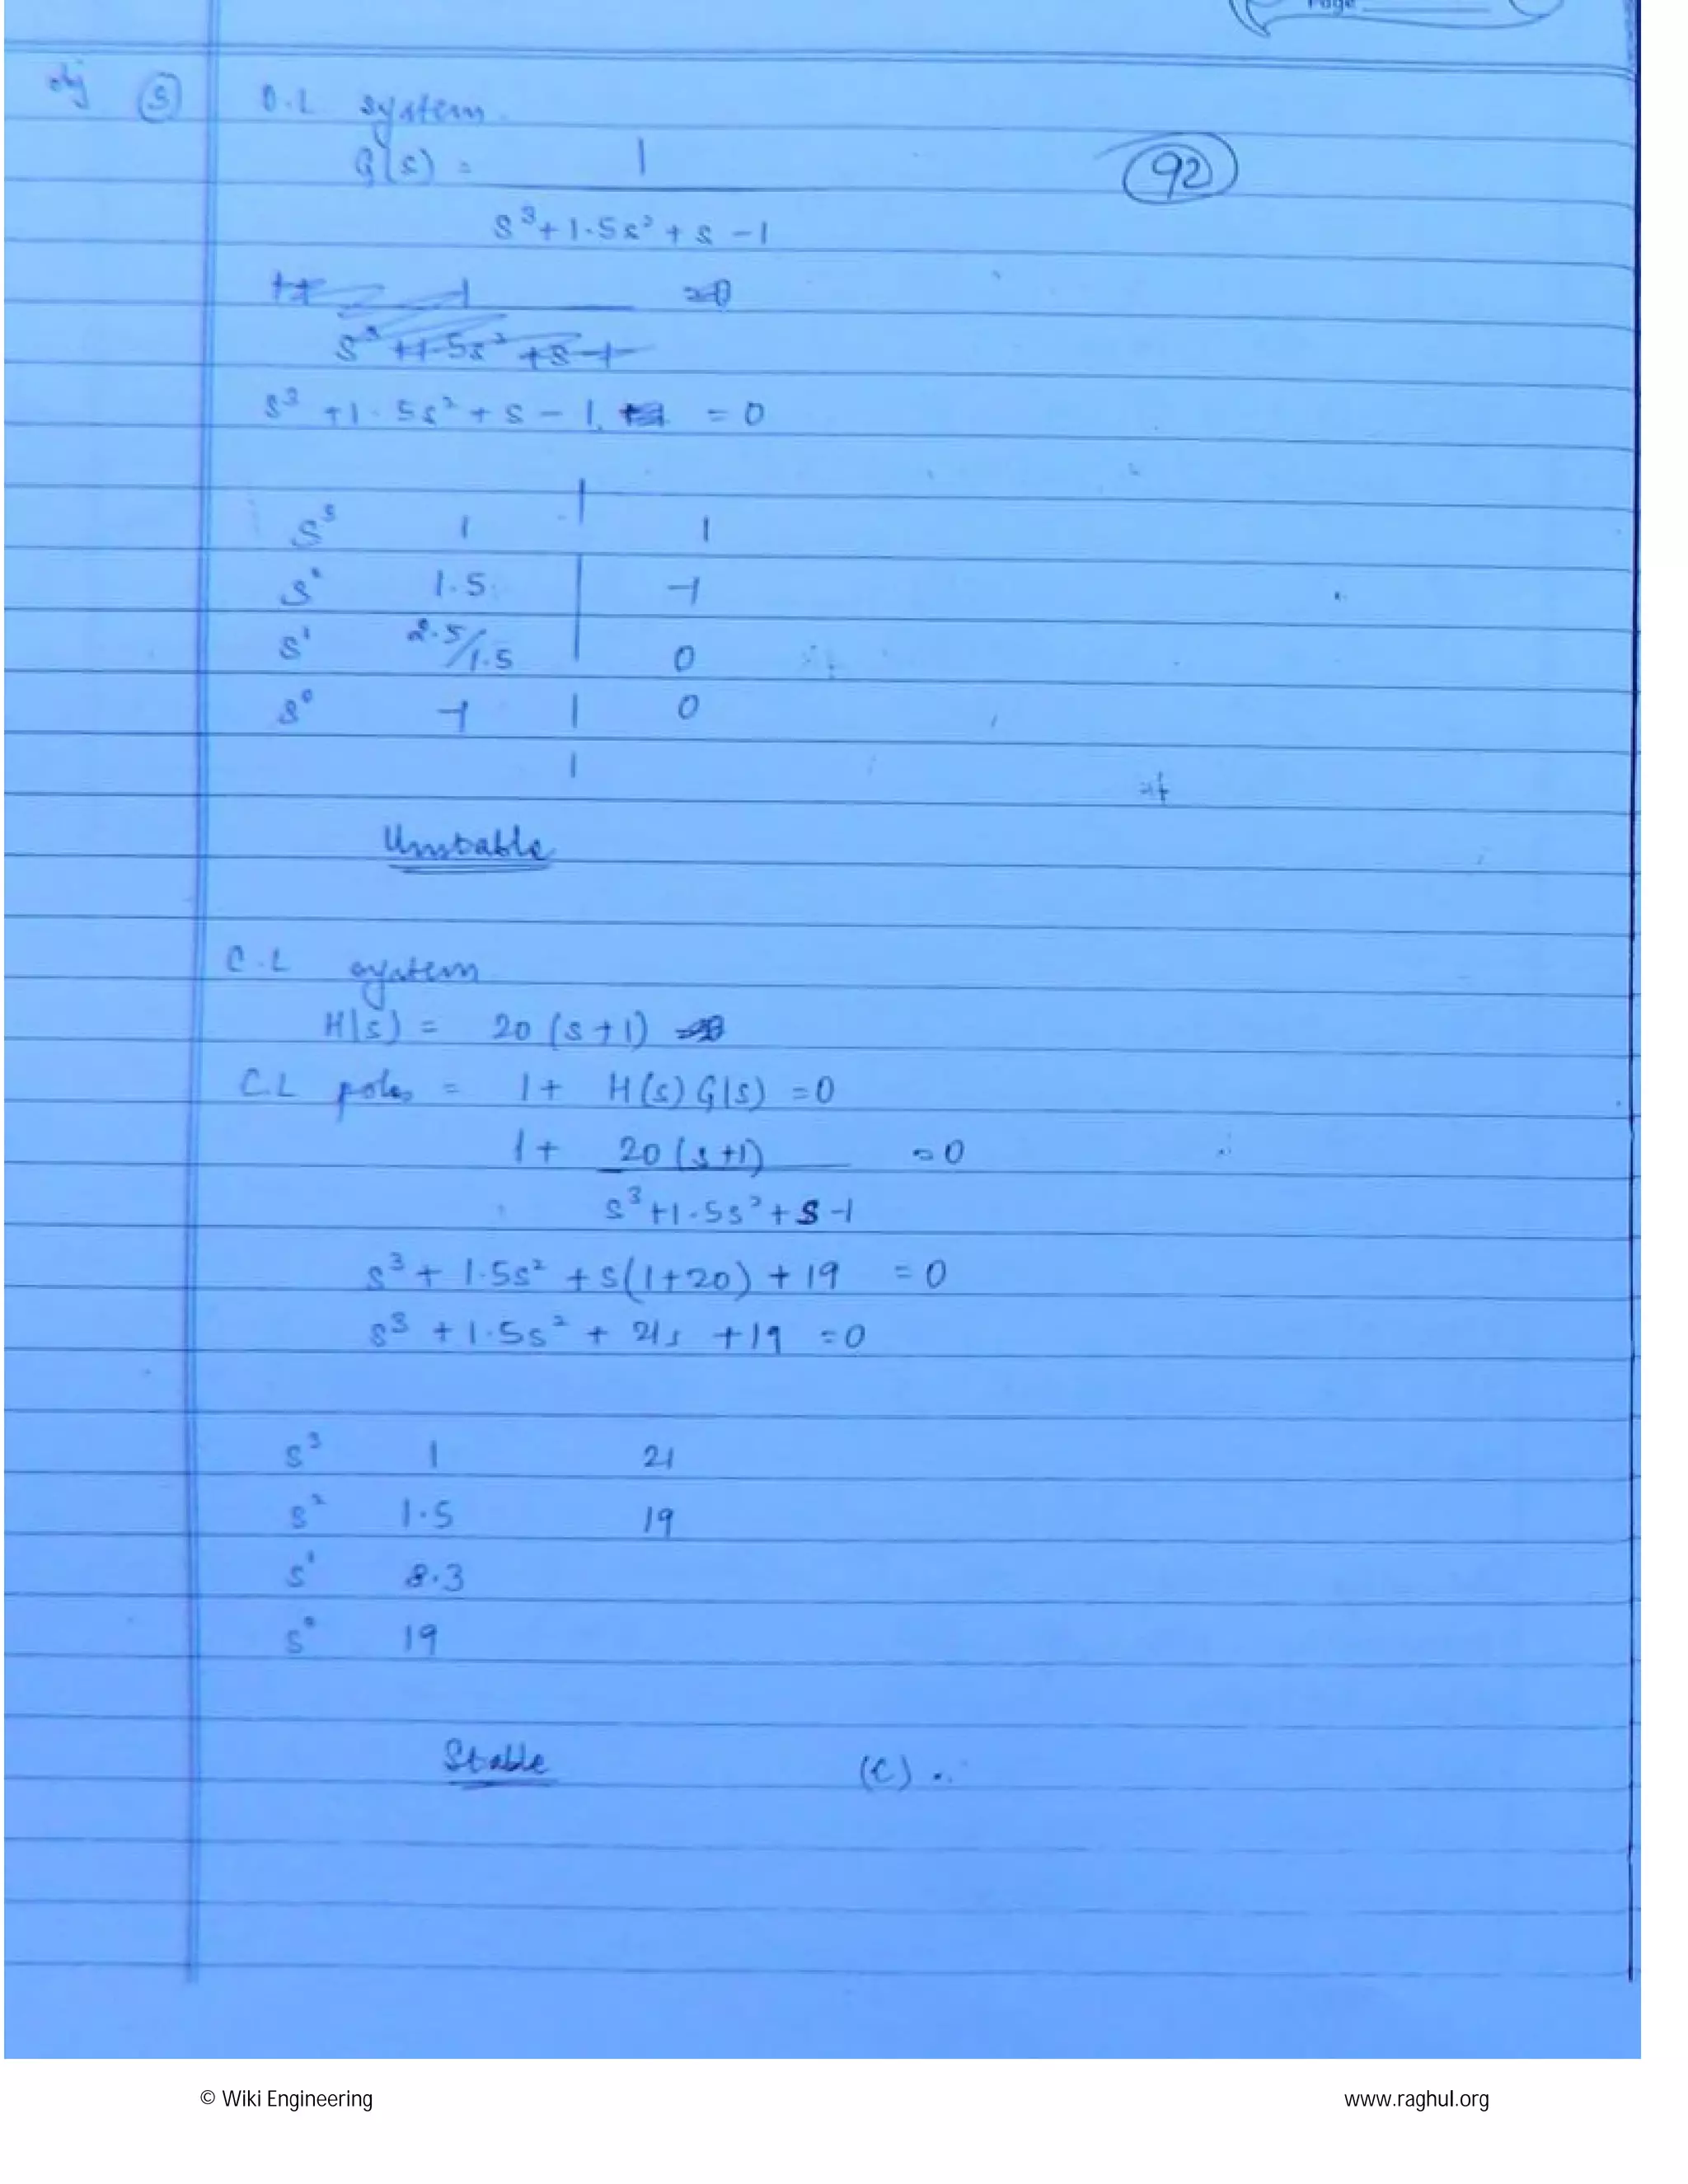 Page
obj (5) O.L system.
G(s) = 1
(92)
s³+1.5s²+s-1
1+ 1 =0
s³+1.5s²+s-1
s³ +1.5s²+s-1 = 0
s³ 1 1
s² 1.5 -1
s¹ 2.5/1.5 0
s⁰ -1 0
Unstable
C.L system
H(s) = 20(s+1)
C.L poles = 1+ H(s)G(s) =0
1+ 20(s+1) =0
s³+1.5s²+s-1
s³+ 1.5s² +s(1+20) +19 =0
s³ +1.5s² + 21s +19 =0
s³ 1 21
s² 1.5 19
s¹ 8.3
s⁰ 19
Stable (C).
© Wiki Engineering www.raghul.org